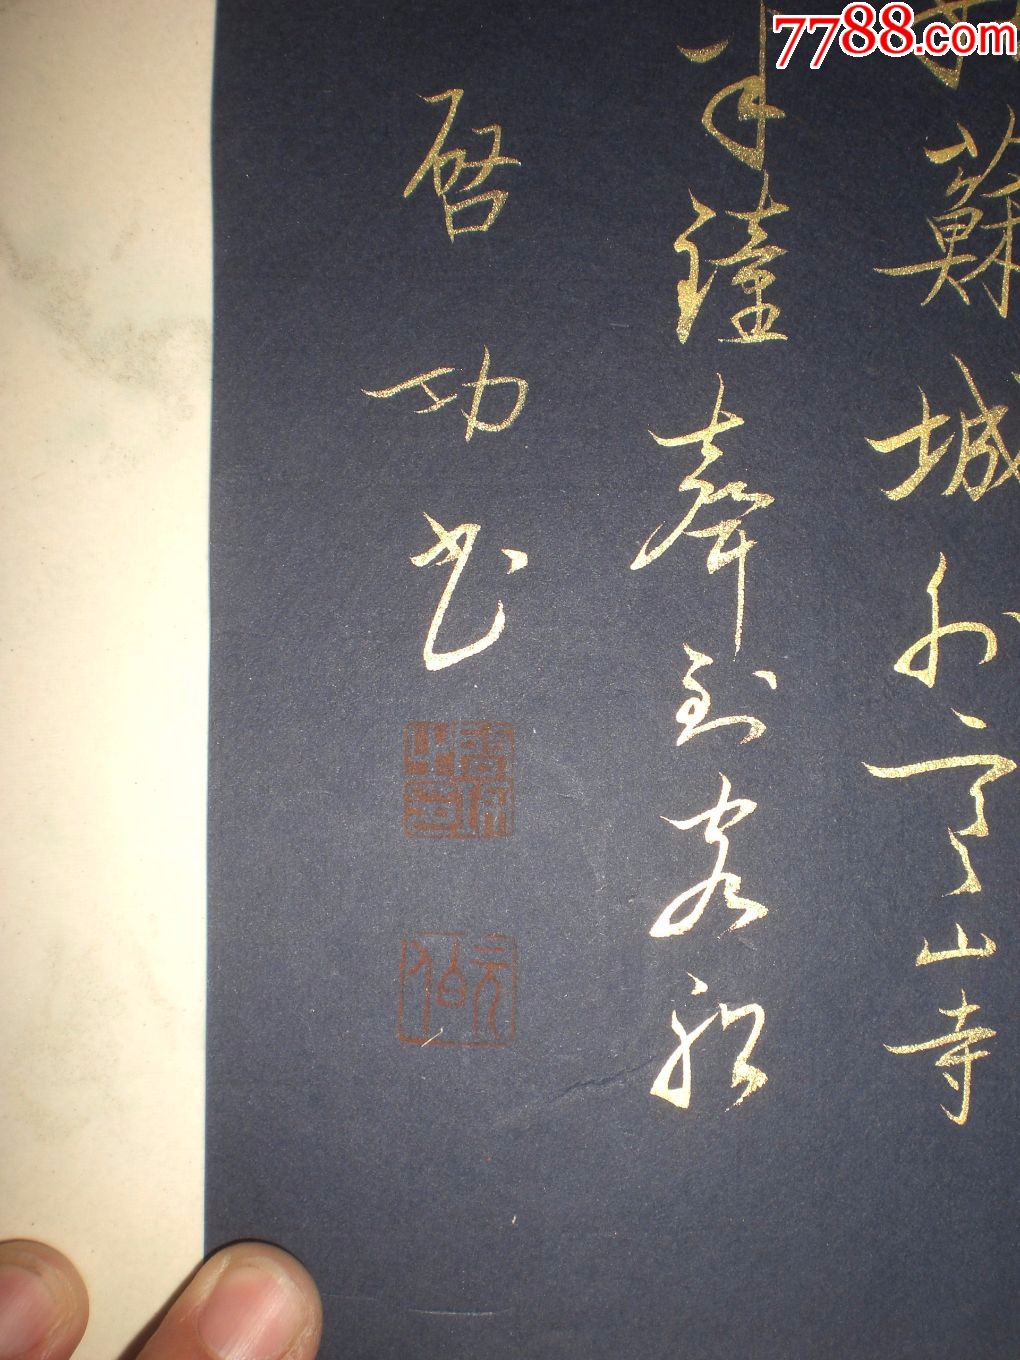 7788.com
蘇城外寒山寺
半鐘聲到客船
启功书
元白